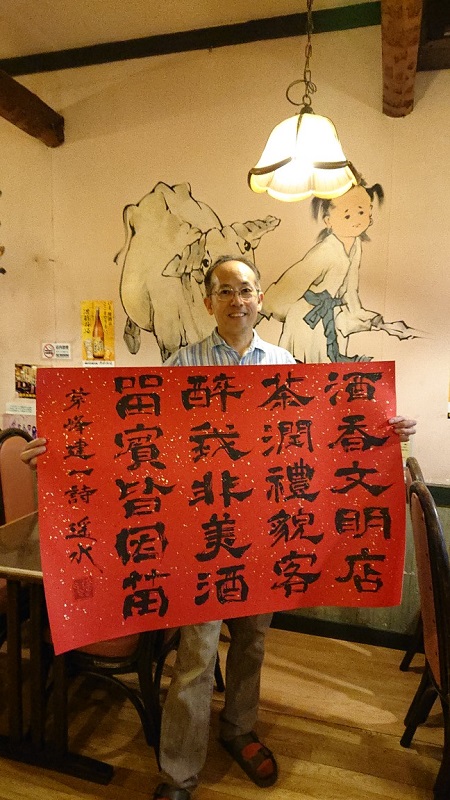 酒香文明店
茶潤禮貌客
醉我非美酒
留賓皆因苗
茅峰建一詩 遥水